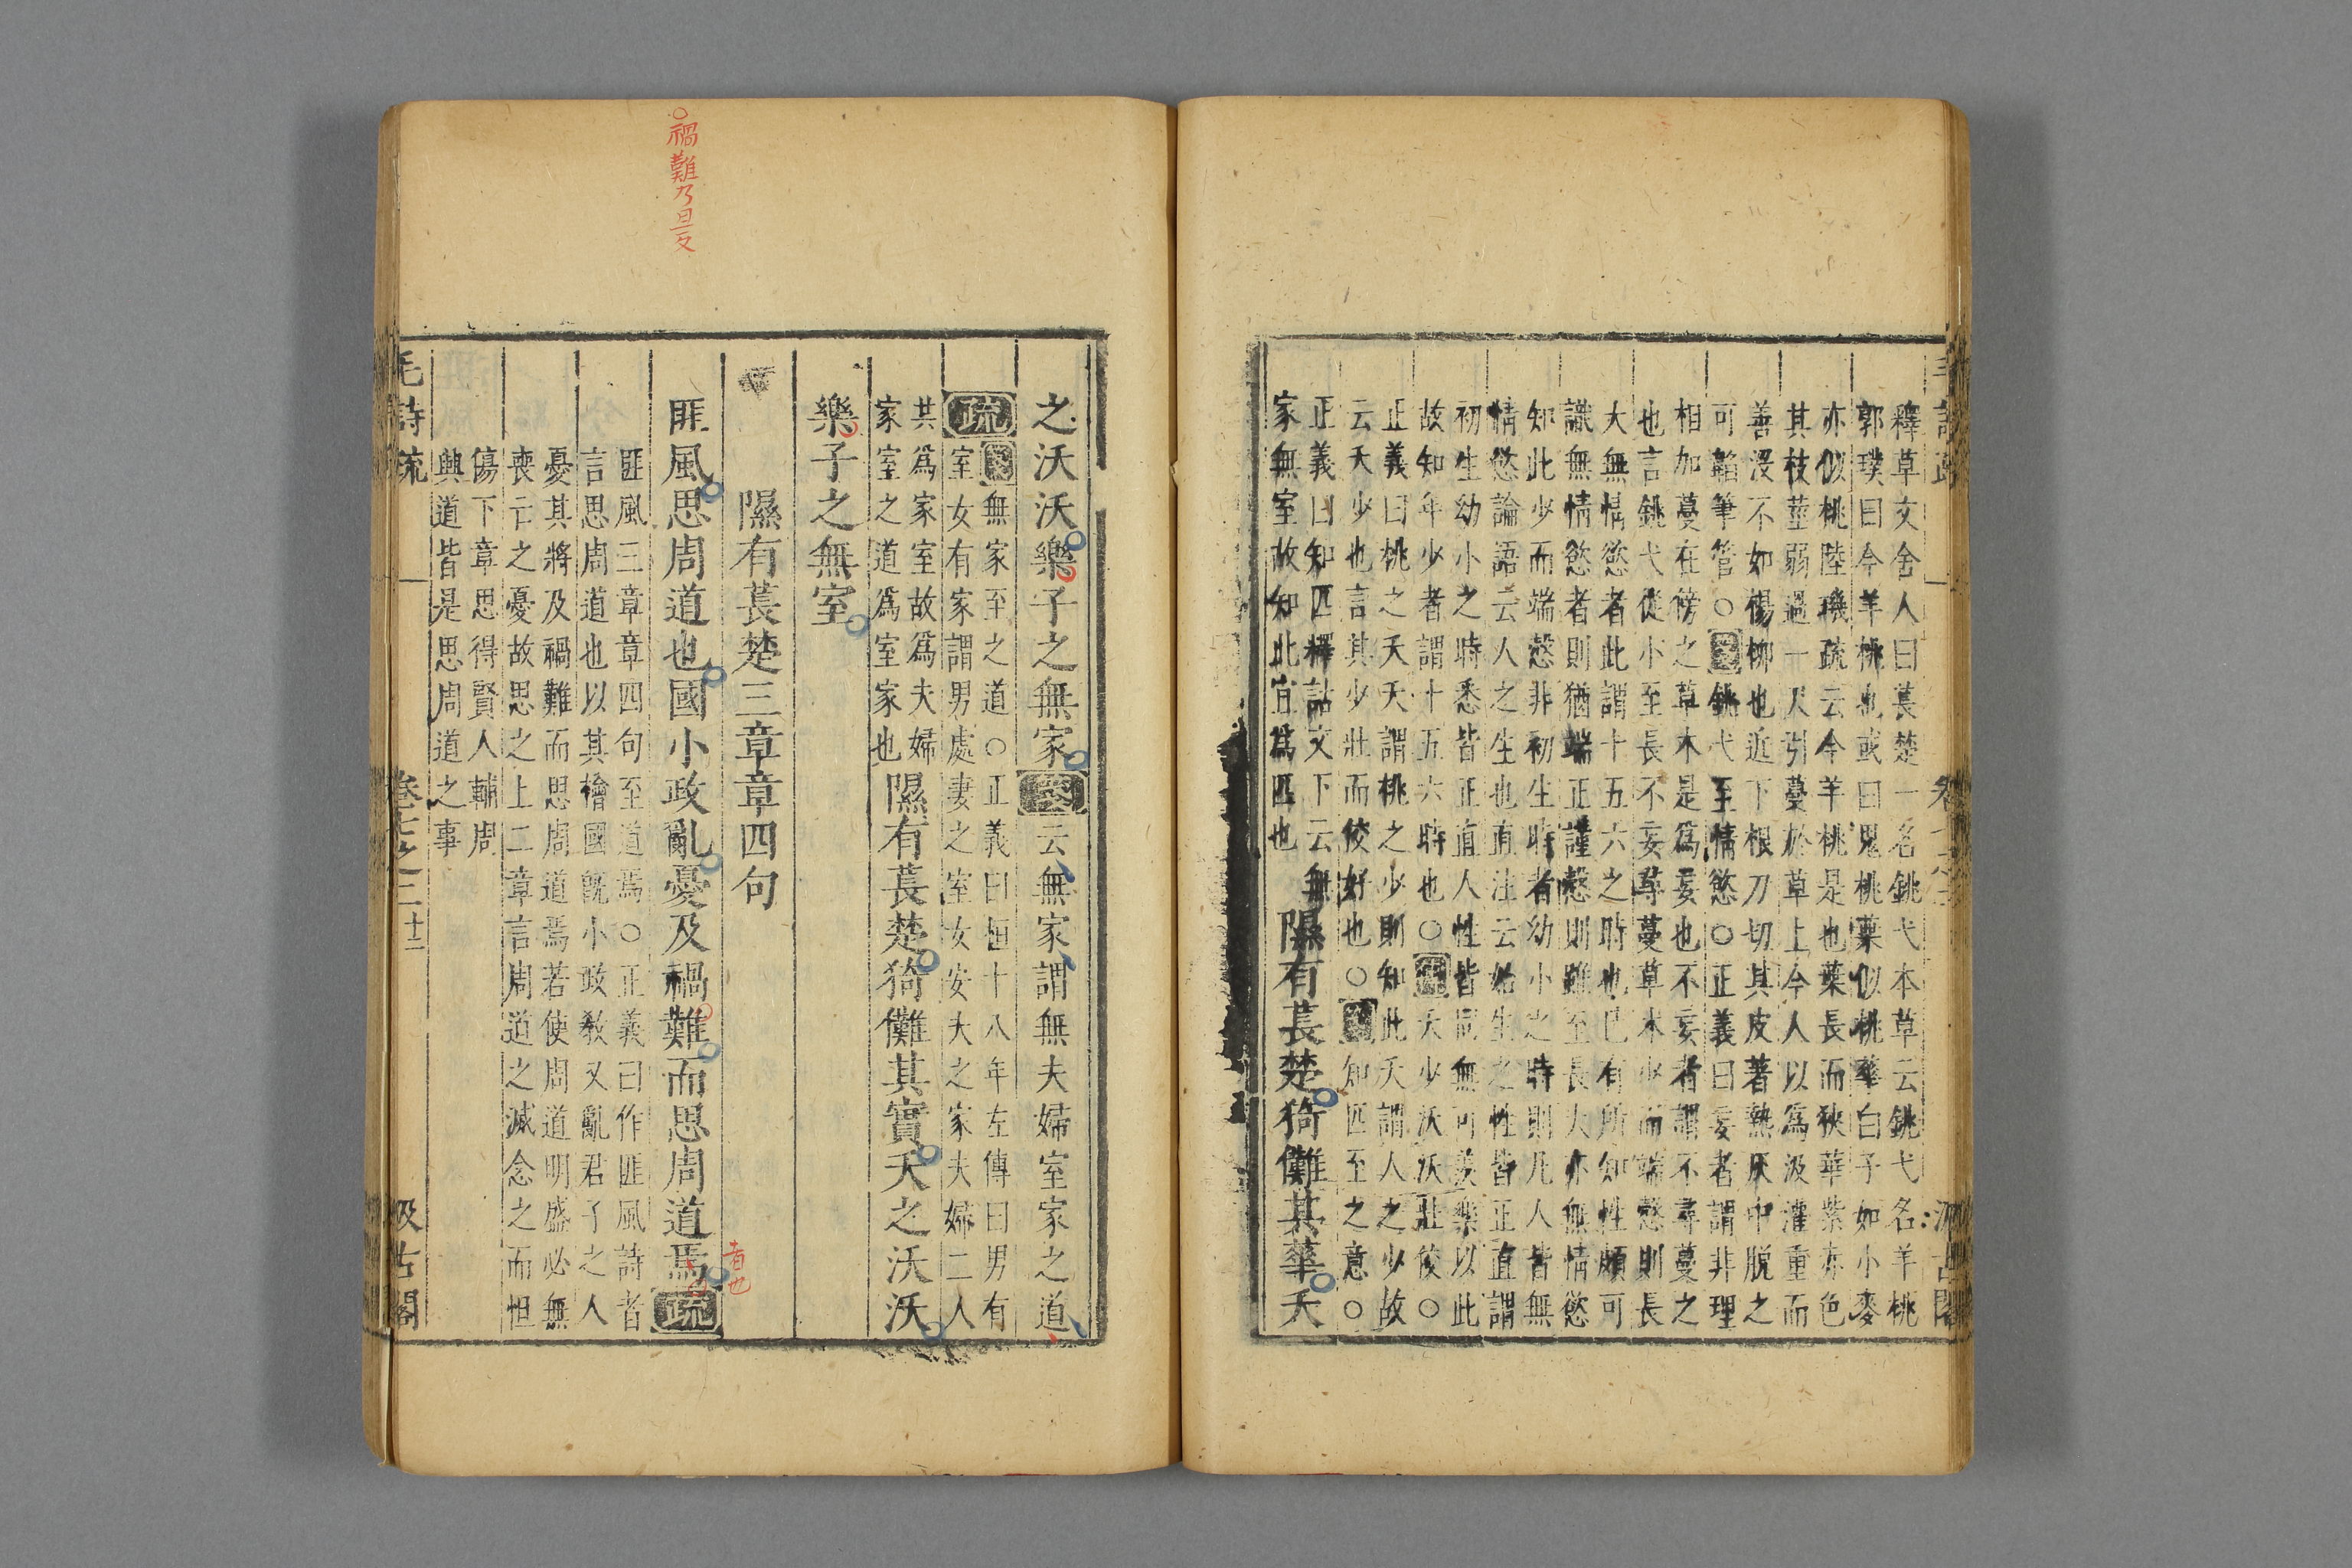 毛詩疏
釋草文舍人曰萇楚一名銚弋本草云銚弋名羊桃
郭璞曰今羊桃也或曰鬼桃葉似桃華白子如小麥
亦似桃陸璣疏云今羊桃是也葉長而狹華紫赤色
其枝莖弱過一人引蔓於草上今人以爲汲灌重而
善沒不如楊柳也近下根刀切其皮著熱灰中脫之
可韜筆管○箋銚弋至情慾○正義曰妄者謂非理
相加蔓在傍之草木是爲妄也不妄者謂不尋蔓之
也言銚弋從小至長不妄尋蔓草木少而端慤則長
大無情慾者此謂十五六之時也已有所知性頗可
識無情慾者則猶端正謹慤則雖至長大亦無情慾
知此少而端慤非初生時者幼小之時則凡人皆無
情慾論語云人之生也直注云始生之性皆正直謂
初生幼小之時悉皆正直人性皆同無可羨樂以此
故知年少者謂十五六時也○傳夭少沃沃壯佼○
正義曰桃之夭夭謂桃之少則知此夭謂人之少故
云夭少也言其少壯而佼好也○箋知匹至之意○
正義曰知匹釋詁文下云無
家無室故知此宜爲匹也
隰有萇楚猗儺其華夭
之沃沃樂子之無家箋云無家謂無夫婦室家之道
疏箋無家至之道○正義曰桓十八年左傳曰男有
室女有家謂男處妻之室女安夫之家夫婦二人
其爲家室故爲夫婦
家室之道爲室家也
隰有萇楚猗儺其實夭之沃沃
樂子之無室
隰有萇楚三章章四句
匪風思周道也國小政亂憂及禍難而思周道焉疏
者也
○禍難乃旦反
匪風三章章四句至道焉○正義曰作匪風詩者
言思周道也以其檜國旣小政敎又亂君子之人
憂其將及禍難而思周道焉若使周道明盛必無
喪亡之憂故思之上二章言周道之滅念之而怛
傷下章思得賢人輔周
興道皆是思周道之事
毛詩疏 卷七之二 十二 汲古閣